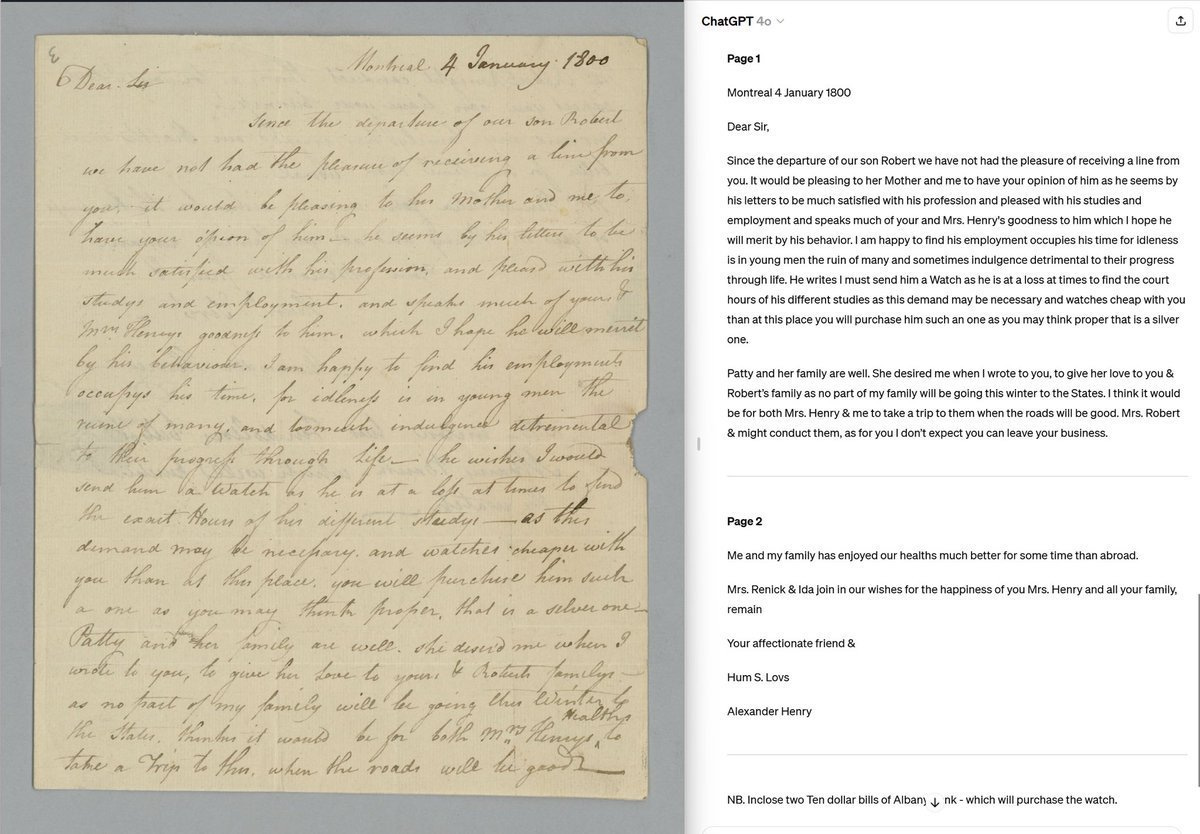 Montreal 4 January 1800
Dear Sir
Since the departure of our son Robert
we have not had the pleasure of receiving a line from
you, it would be pleasing to his Mother and me, to
have your opion of him — he seems by his letters to be
much satisfied with his profession, and pleasd with his
studys and employment, and speaks much of yours &
Mrs Henrys goodness to him, which I hope he will merrit
by his behaviour. I am happy to find his employments
occupys his time, for idleness is in young men the
ruine of many, and toomuch indulgence detremental
to their progress through Life — he wishes I would
send him a Watch as he is at a loss at times to find
the exact Hours of his different studys — as this
demand may be necessary. and watches cheaper with
you than at this place, you will purchise him such
a one as you may think proper, that is a silver one —
Patty and her family are well. she desird me when I
wrote to you, to give her Love to yours & Roberts familys —
as no part of my family will be going this Winter to
the States, thinks it would be for both Mrs Henrys Healths to
take a Trip to this, when the roads will be good
ChatGPT 4o
Page 1
Montreal 4 January 1800
Dear Sir,
Since the departure of our son Robert we have not had the pleasure of receiving a line from
you. It would be pleasing to her Mother and me to have your opinion of him as he seems by
his letters to be much satisfied with his profession and pleased with his studies and
employment and speaks much of your and Mrs. Henry's goodness to him which I hope he
will merit by his behavior. I am happy to find his employment occupies his time for idleness
is in young men the ruin of many and sometimes indulgence detrimental to their progress
through life. He writes I must send him a Watch as he is at a loss at times to find the court
hours of his different studies as this demand may be necessary and watches cheap with you
than at this place you will purchase him such an one as you may think proper that is a silver
one.
Patty and her family are well. She desired me when I wrote to you, to give her love to you &
Robert's family as no part of my family will be going this winter to the States. I think it would
be for both Mrs. Henry & me to take a trip to them when the roads will be good. Mrs. Robert
& might conduct them, as for you I don't expect you can leave your business.
Page 2
Me and my family has enjoyed our healths much better for some time than abroad.
Mrs. Renick & Ida join in our wishes for the happiness of you Mrs. Henry and all your family,
remain
Your affectionate friend &
Hum S. Lovs
Alexander Henry
NB. Inclose two Ten dollar bills of Albany nk - which will purchase the watch.